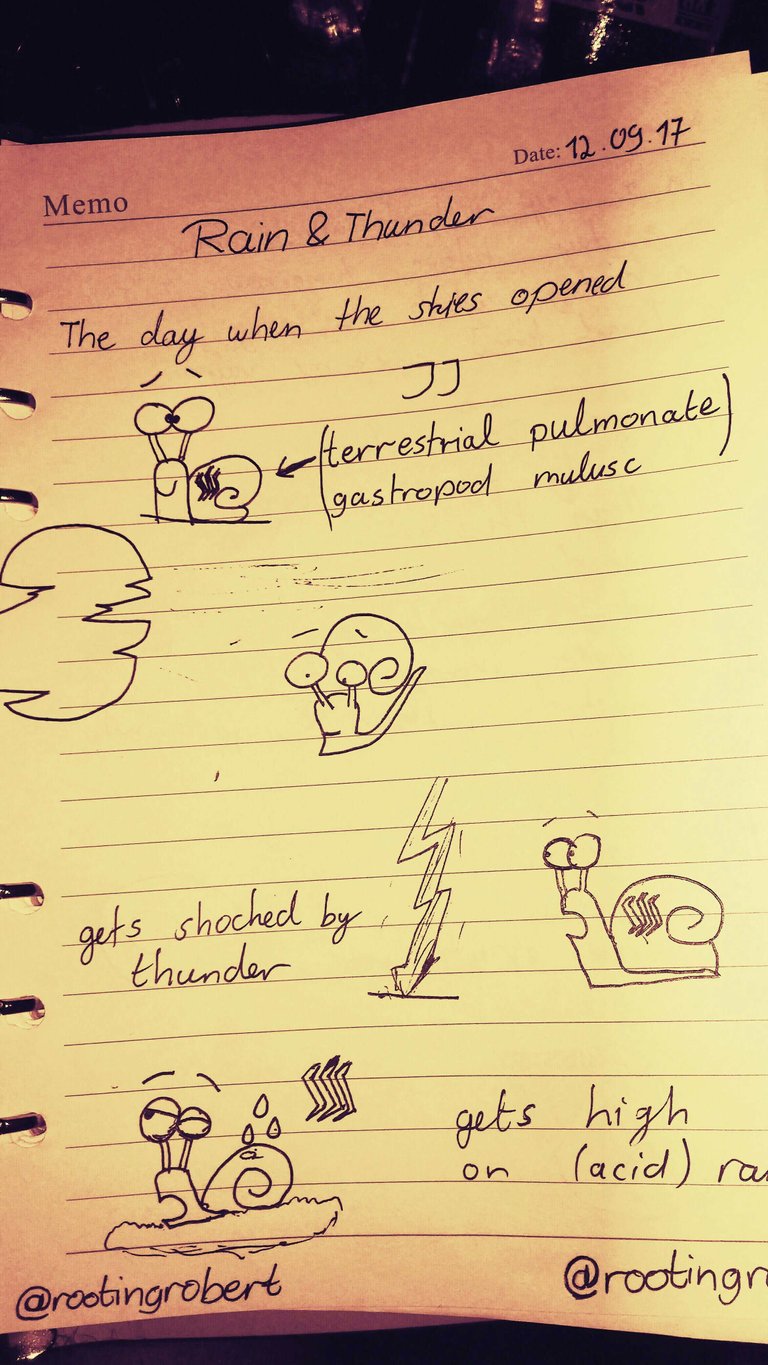 Date: 12.09.17
Memo
Rain & Thunder
The day when the skies opened
JJ
(terrestrial pulmonate)
gastropod mulusc
gets shoched by
thunder
gets high
on (acid) ra
@rootingrobert
@rootingr